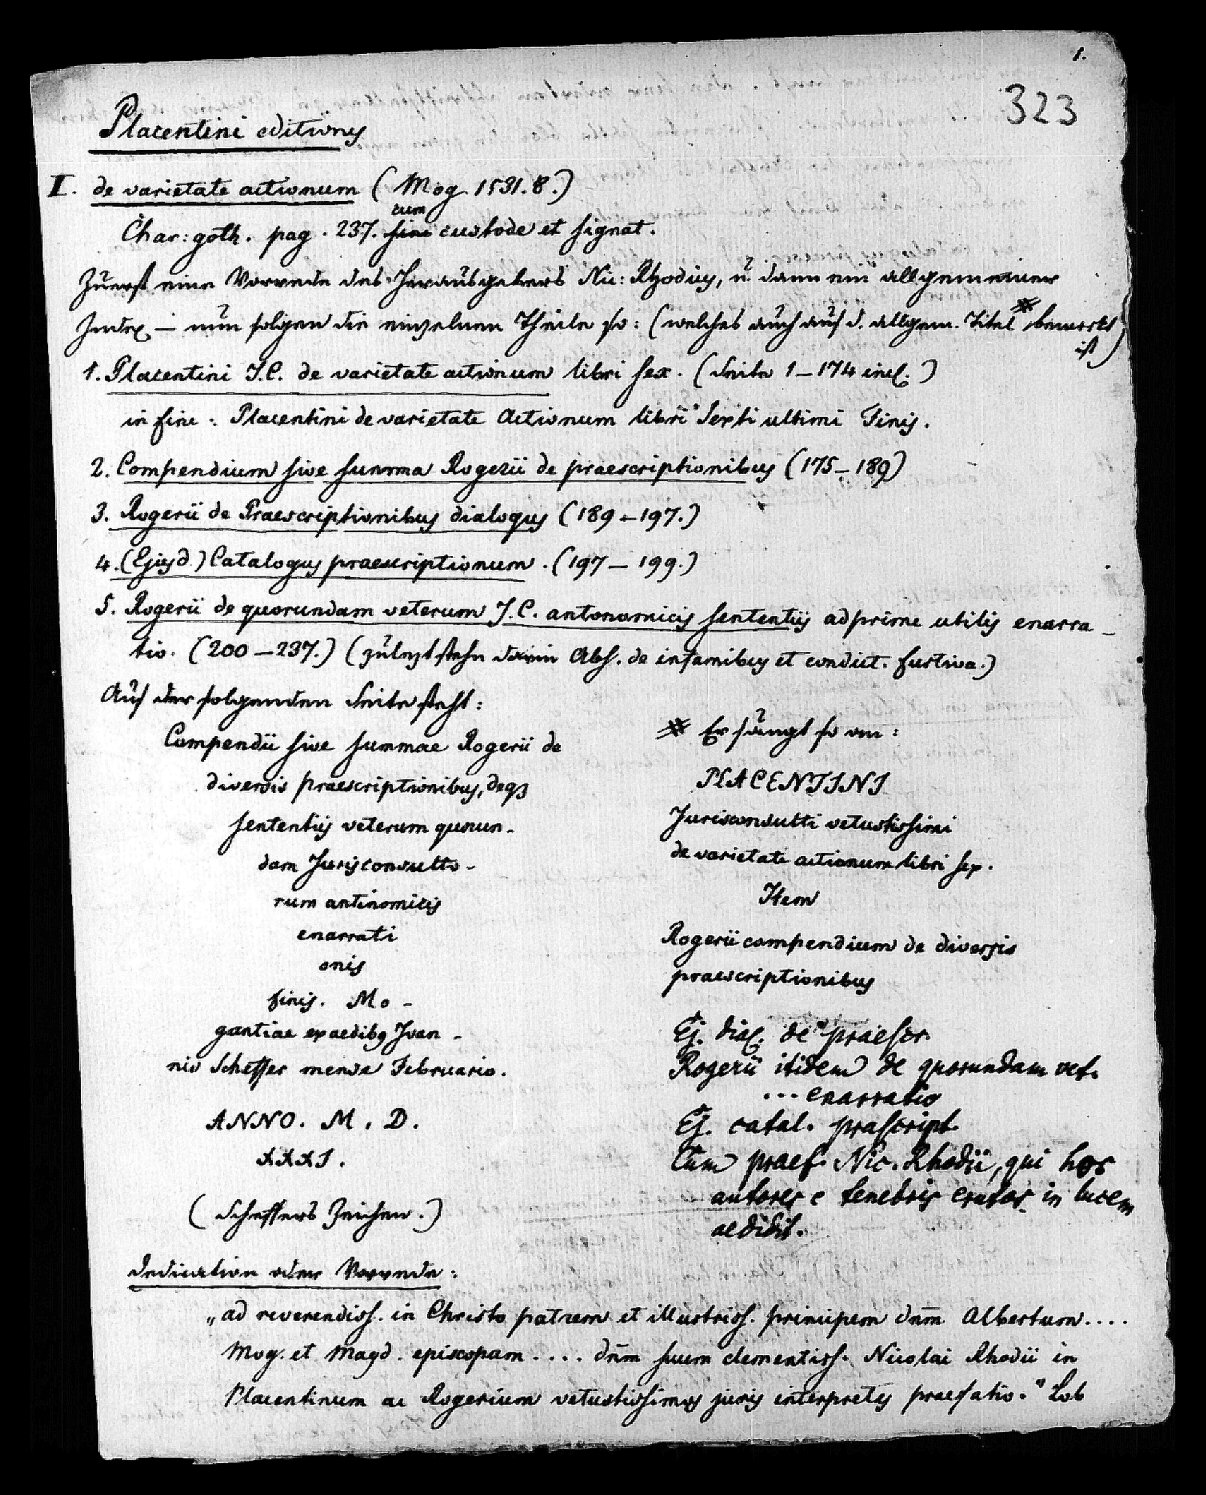 1.
323
Placentini editiones
I. de varietate actionum (Mog. 1531. 8.)
cum
Char: goth. pag. 237. sine custode et signat.
Zuerst eine Vorrede des Herausgebers Nic: Rhodius, u dann ein allgemeiner
Index — nun folgen die einzelnen Theile so: (welches auch auf d. allgem. Titel * bemerkt
ist)
1. Placentini J.C. de varietate actionum libri sex. (Seite 1–174 incl.)
in fine: Placentini de varietate Actionum libri Sexti ultimi Finis.
2. Compendium sive summa Rogerii de praescriptionibus (175–189)
3. Rogerii de Praescriptionibus dialogus (189–197.)
4. (Ejusd.) Catalogus praescriptionum. (197–199.)
5. Rogerii de quorundam veterum J.C. antonomicis sententiis adprime utilis enarra-
tio. (200–237.) (zuletzt stehn darin Abh. de infamibus et condict. furtiva.)
Auf der folgenden Seite steht:
Compendii sive summae Rogerii de
diversis praescriptionibus, deq3
sententiis veterum quorun-
dam Jurisconsulto-
rum antinomicis
enarrati
onis
finis. Mo-
gantiae ex aedibg Joan-
nis Scheffer mense Februario.
ANNO. M. D.
XXXI.
(Scheffers Zeichen.)
* Er fängt so an:
PLACENTINI
Jurisconsulti vetustissimi
de varietate actionum libri sex.
Item
Rogerii compendium de diversis
praescriptionibus
Ej. dial. de praescr.
Rogerii itidem de quorundam vet.
... enarratio
Ej. catal. praescript.
Cum praef. Nic. Rhodii, qui hos
autores e tenebris erutos in lucem
aedidit.
Dedication oder Vorrede:
„ad reverendiss. in Christo patrem et illustriss. principem dnm Albertum....
Mog. et Magd. episcopum.... dnm suum clementiss. Nicolai Rhodii in
Placentinum ac Rogerium vetustissimos juris interpretes praefatio." Lob